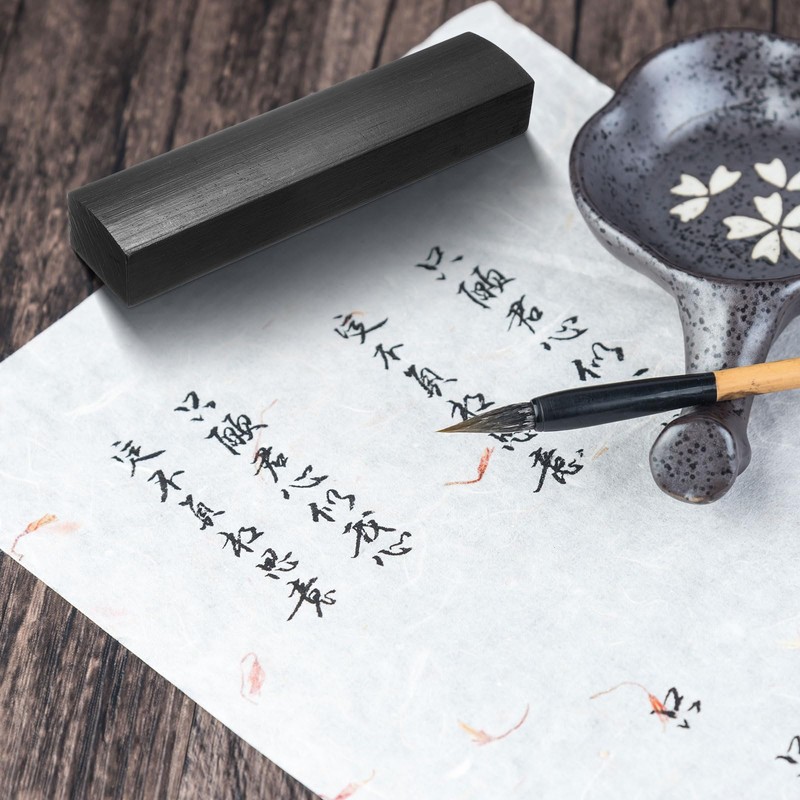 只願君心似
定不負相思意
只願君心似我心
定不負相思意